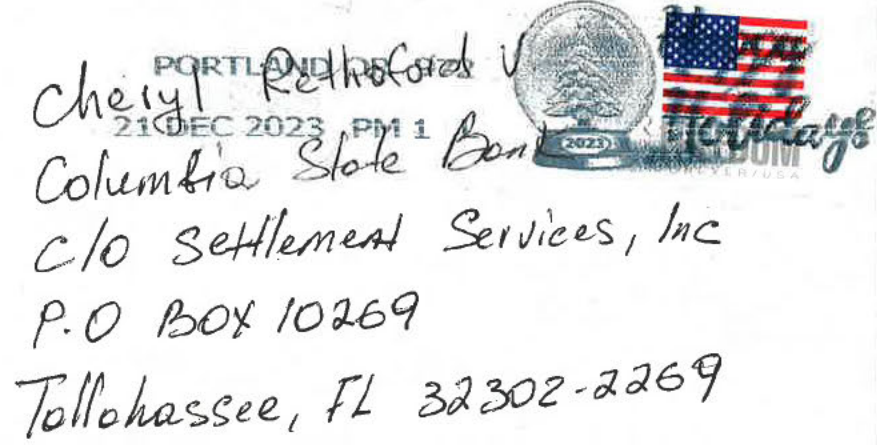 PORTLAND OR 972
21 DEC 2023 PM 1
2023
Happy
Holidays
FREEDOM
FOREVER/USA
Cheryl Rethoford v
Columbia State Bank
C/O Settlement Services, Inc
P.O BOX 10269
Tallahassee, FL 32302-2269